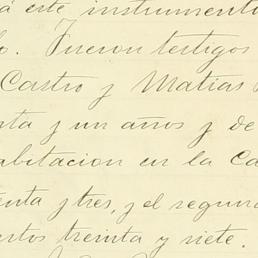 á este instrumento
o. Fueron testigos
Castro y Matias
nta y un años y de
abitacion en la Ca
enta y tres, y el segund
ertos treinta y siete.